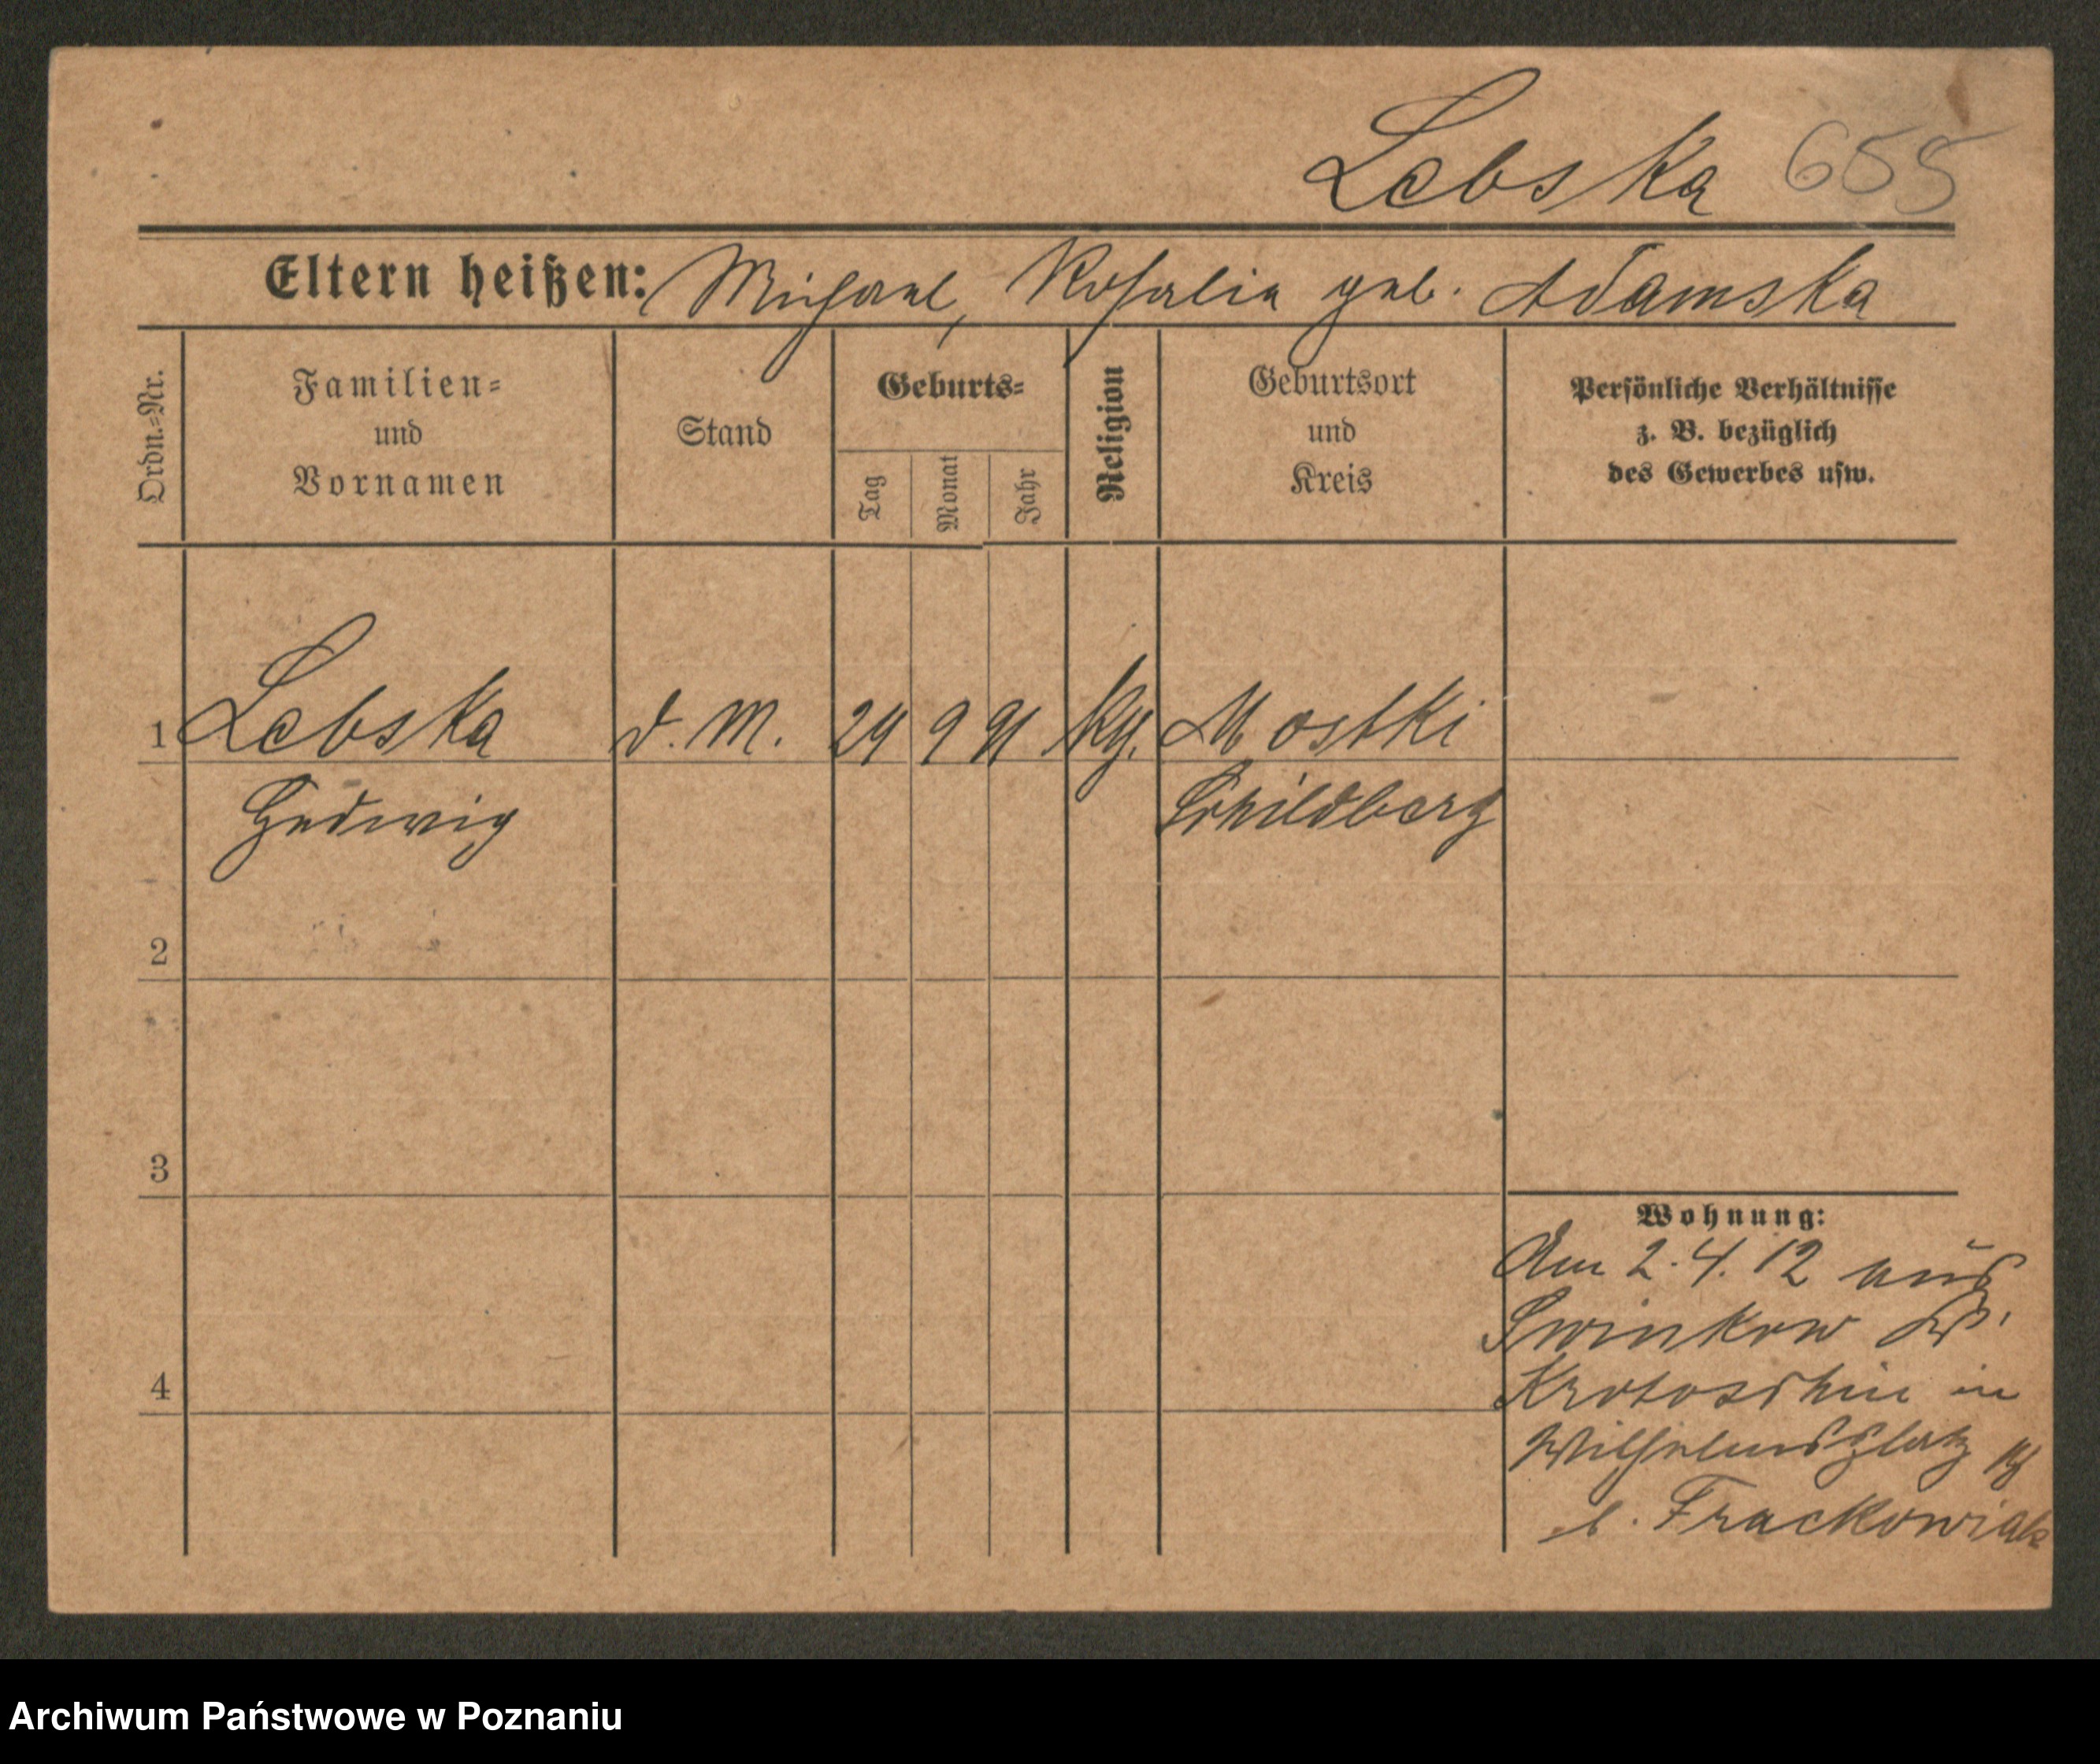 Lebska 655
Eltern heißen: Michael, Rosalia geb. Adamska
Ordn.=Nr.
Familien=
und
Vornamen
Stand
Geburts=
Tag
Monat
Jahr
Religion
Geburtsort
und
Kreis
Persönliche Verhältnisse
z. B. bezüglich
des Gewerbes usw.
1 Lebska d. M. 24 9 91 kg. Mostki
Hedwig Schildberg
2
3
4
Wohnung:
Am 2. 4. 12 aus
Swinkow
Krotoschin in
Wilhelmsplatz
b. Frackowiak
Archiwum Państwowe w Poznaniu